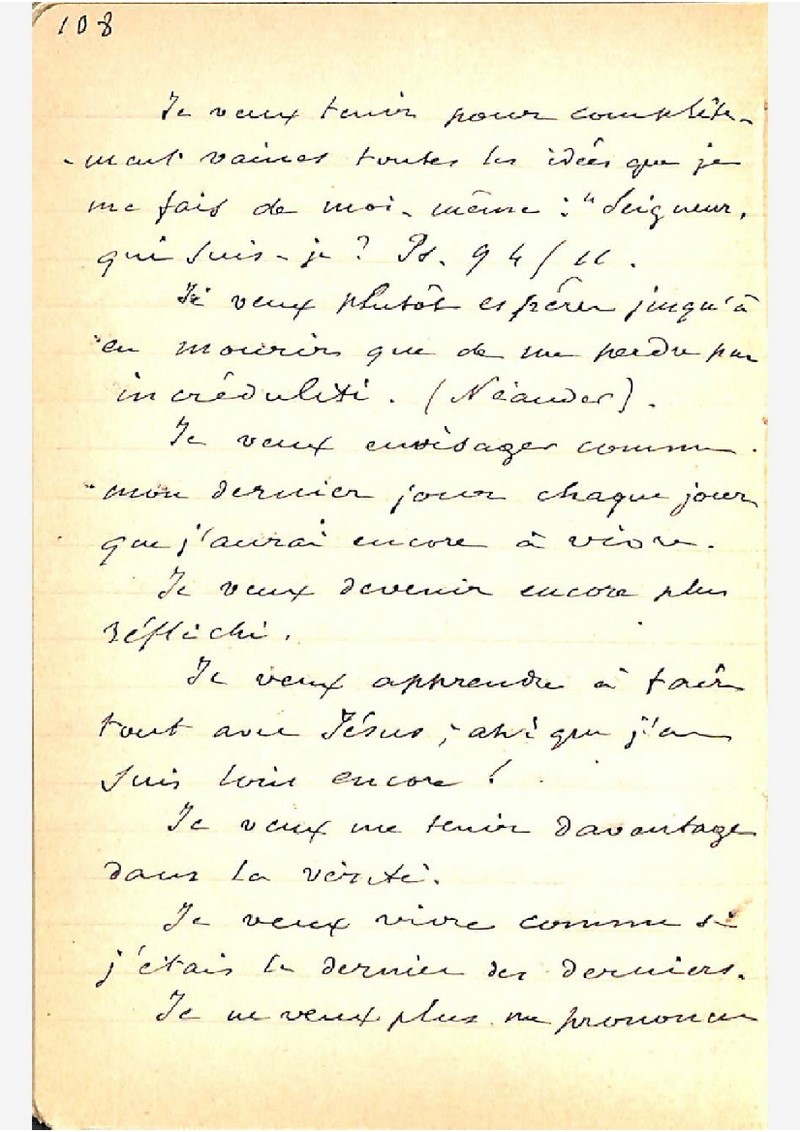 108
Je veux tenir pour complète-
-ment vaines toutes les idées que je
me fais de moi-même : "Seigneur,
qui suis-je ? Ps. 94/11.
Je veux plutôt espérer jusqu'à
en mourir que de me perdre par
incrédulité. (Néander).
Je veux envisager comme
mon dernier jour chaque jour
que j'aurai encore à vivre.
Je veux devenir encore plus
réfléchi.
Je veux apprendre à faire
tout avec Jésus ; ah! que j'en
suis loin encore !
Je veux me tenir davantage
dans la vérité.
Je veux vivre comme si
j'étais le dernier des derniers.
Je ne veux plus me prononcer